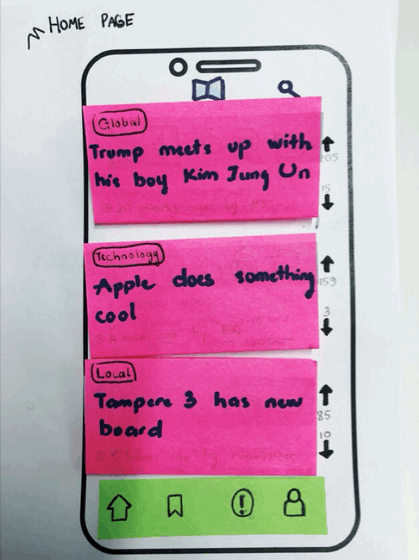 HOME PAGE
Global
Trump meets up with
his boy Kim Jung Un
205
15
Technology
Apple does something
cool
159
3
Local
Tampere 3 has new
board
85
10